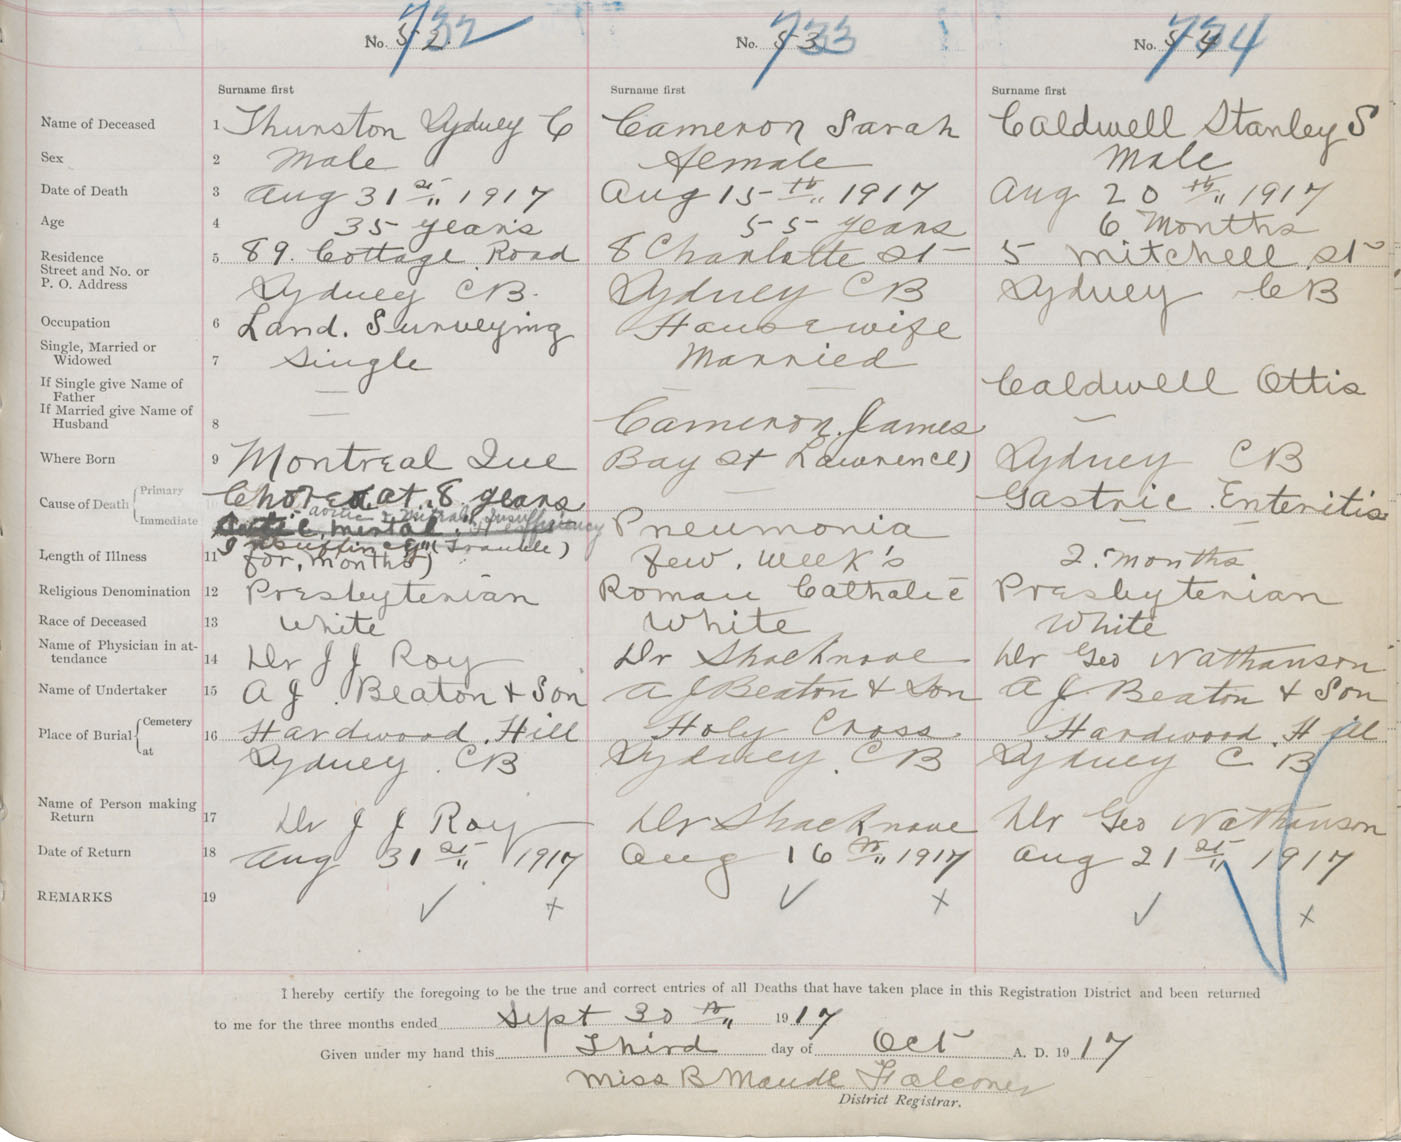 No. 52 732
No. 53 733
No. 54 734
Surname first
Surname first
Surname first
Name of Deceased 1 Thurston Sydney C
Cameron Sarah
Caldwell Stanley S
Sex 2 Male
female
Male
Date of Death 3 Aug 31st 1917
Aug 15th 1917
Aug 20th 1917
Age 4 35 years
55 years
6 Months
Residence
Street and No. or
P. O. Address
5 89. Cottage Road
8 Charlotte St
5 Mitchell St
Sydney CB.
Sydney CB
Sydney CB
Occupation 6 Land. Surveying
Housewife
Single, Married or
Widowed 7 Single
Married
If Single give Name of
Father
Caldwell Ottis
If Married give Name of
Husband 8
Cameron. James
Where Born 9 Montreal Que
Bay St Lawrence)
Sydney CB
Cause of Death { Primary
Immediate
Chorea at. 8 years
aortic & Mitral Insufficiency
(Trouble)
Pneumonia
Gastric. Enteritis
Length of Illness 11 for. months)
few. week's
2. months
Religious Denomination 12 Presbyterian
Roman Catholic
Presbyterian
Race of Deceased 13 White
White
White
Name of Physician in at-
tendance 14 Dr J J Roy
Dr Shacknove
Dr Geo Nathanson
Name of Undertaker 15 A J. Beaton & Son
A J Beaton & Son
A J. Beaton & Son
Place of Burial { Cemetery
at
16 Hardwood. Hill
Holy Cross
Hardwood. Hill
Sydney. CB
Sydney. CB
Sydney C B
Name of Person making
Return 17 Dr J J Roy
Dr Shacknove
Dr Geo Nathanson
Date of Return 18 Aug 31st 1917
Aug 16th 1917
Aug 21st 1917
REMARKS 19 ✓ x
✓ x
✓ x
I hereby certify the foregoing to be the true and correct entries of all Deaths that have taken place in this Registration District and been returned
to me for the three months ended Sept 30th 1917
Given under my hand this Third day of Oct A. D. 1917
Miss B Maude Falconer
District Registrar.